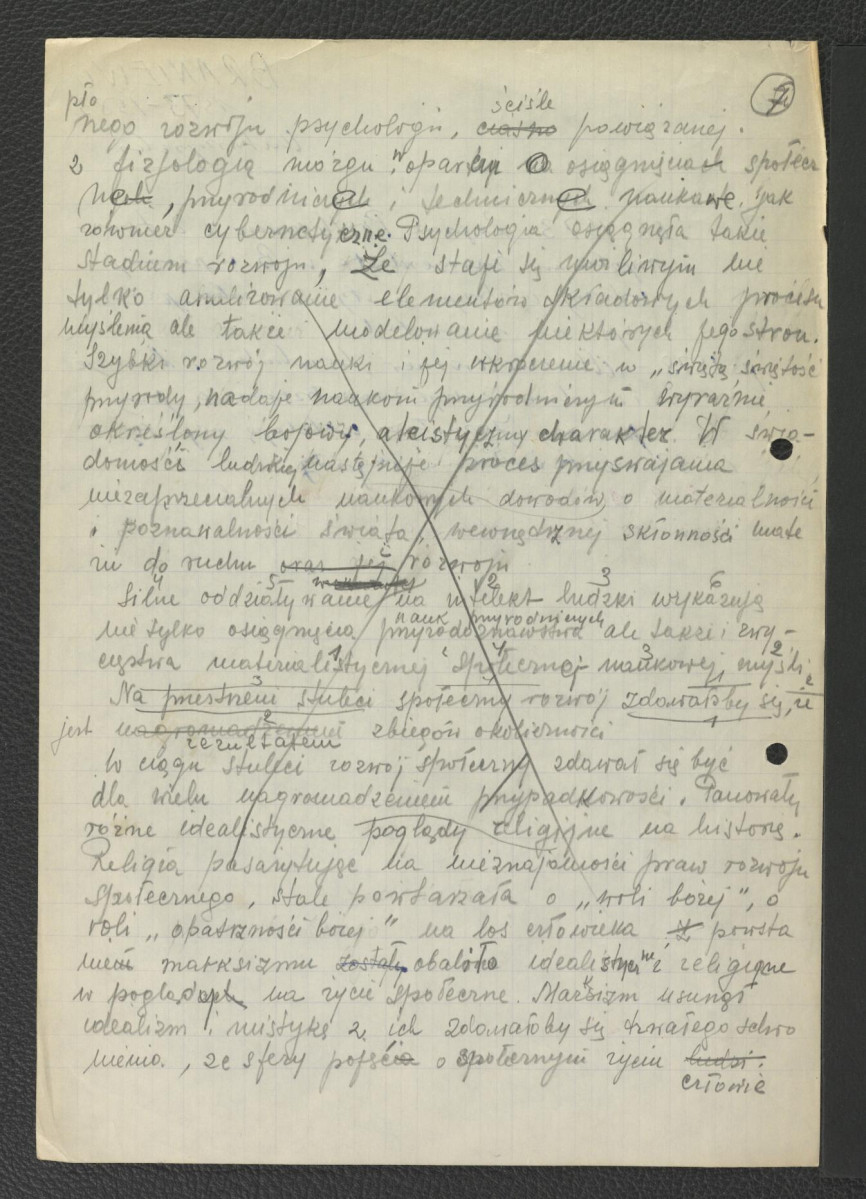 7
pło ściśle
nego rozwoju psychologii, ciasno powiązanej.
z fizjologią mózgu w oparciu o osiągnięcia społecz
nych, przyrodnicze i techniczne naukowe, jak
również cybernetyczne. Psychologia osiągnęła takie
stadium rozwoju, że staje się możliwym nie
tylko analizowanie elementów składowych procesu
myślenia ale także modelowanie niektórych jego stron.
Szybki rozwój nauki i jej wkroczenie w „świętą świętość
przyrody, nadaje naukom przyrodniczym wyraźnie
określony bojowy, ateistyczny charakter. W świa-
domości ludzkiej następuje proces przyswajania
niezaprzeczalnych naukowych dowodów, o materialności
i poznawalności świata, wewnędrznej skłonności mate
rii do ruchu oraz jej rozwoju
4 5 2 3 6
Silne oddziaływanie na intelekt ludzki wykazują
nauk przyrodniczych
nie tylko osiągnięcia przyrodoznawstwa ale także i zwy-
1 4 3 2
cięstwa materialistycznej społecznej naukowej myśli
3
Na przestrzeni stuleci społeczny rozwój zdawałoby się, że
2 1
jest nagromadzeniem zbiegów okoliczności
rezultatem
W ciągu stuleci rozwój społeczny zdawał się być
dla wielu nagromadzeniem przypadkowości. Panowały
różne idealistyczne poglądy religijne na historię.
Religia pasożytując na nieznajomości praw rozwoju
społecznego, stale powtarzała o „woli bożej”, o
roli „opatrzności bożej” na los człowieka z powsta
niem marksizmu zostały obaliło idealistyczne i religijne
w poglądach na życie społeczne. Marksizm usunął
idealizm i mistykę z ich zdawałoby się trwałego schro
nienia, ze sfery pojęcia o społecznym życiu ludzi.
człowie